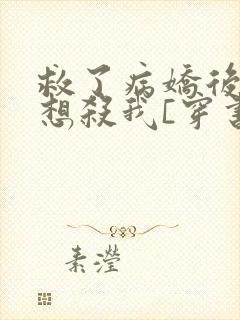 救了病嬌後
想殺我[穿書
素瀅